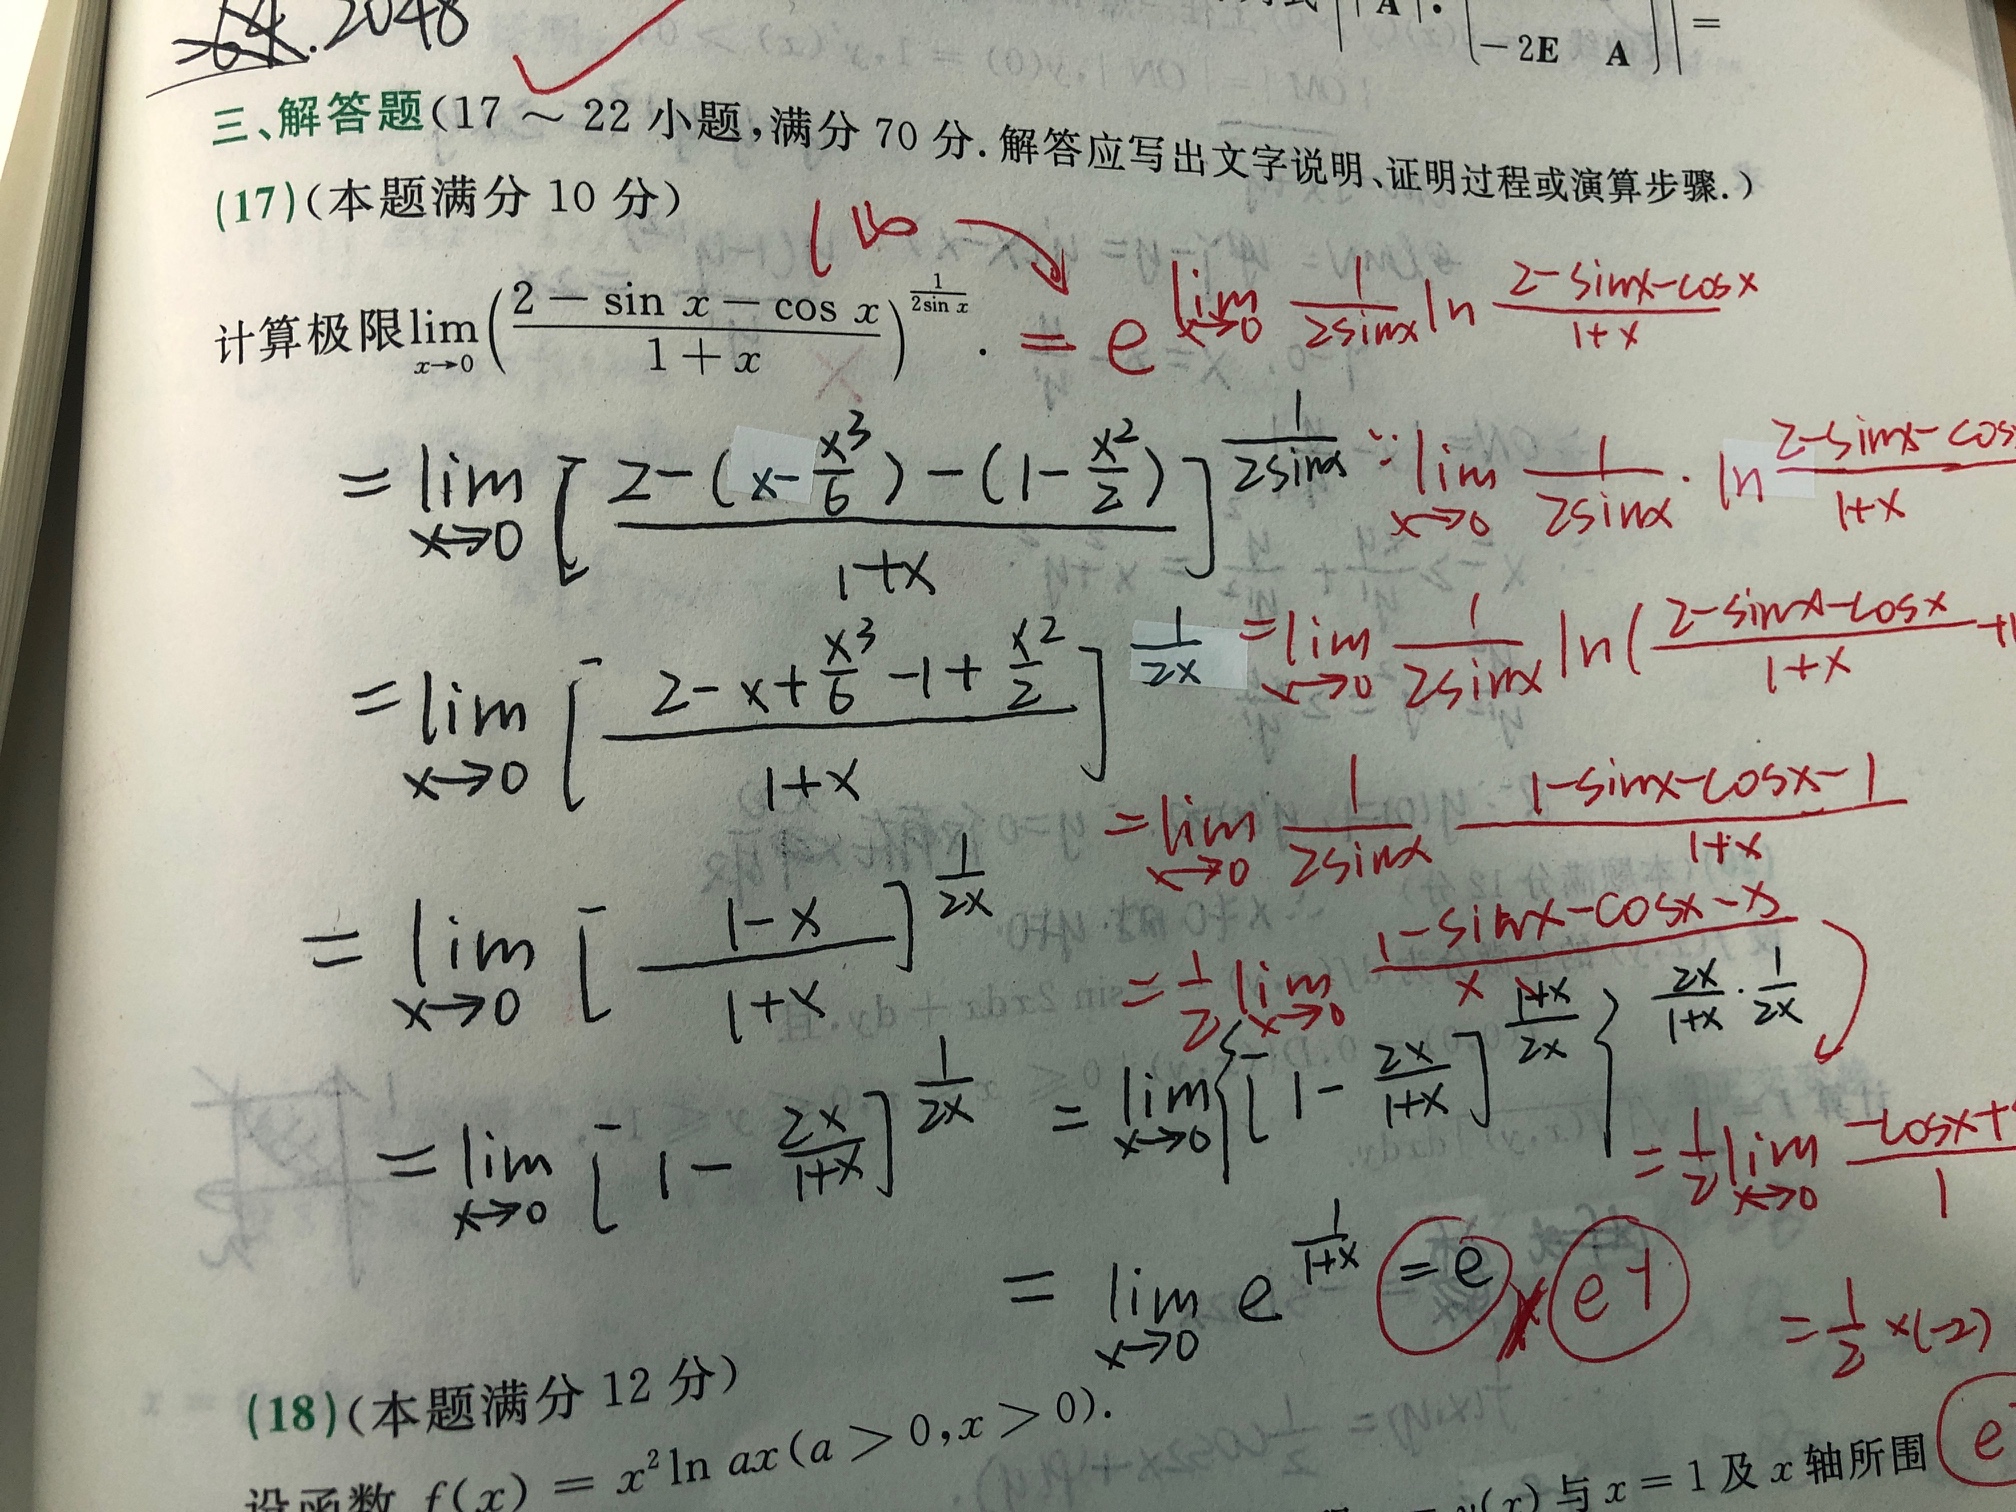 2048
-2E A =
三、解答题(17 ~ 22 小题,满分 70 分. 解答应写出文字说明、证明过程或演算步骤.)
(17)(本题满分 10 分)
1^∞
计算极限 lim_{x→0} ((2 − sin x − cos x)/(1 + x))^{1/(2sin x)} .
= e^{lim_{x→0} 1/(2sinx) ln (2-sinx-cosx)/(1+x)}
= lim_{x→0} [(2-(x-x³/6)-(1-x²/2))/(1+x)]^{1/(2sinx)}
∵ lim_{x→0} 1/(2sinx) · ln (2-sinx-cos/(1+x)
= lim_{x→0} [(2-x+x³/6-1+x²/2)/(1+x)]^{1/(2x)}
= lim_{x→0} 1/(2sinx) ln((2-sinx-cosx)/(1+x) +1
= lim_{x→0} 1/(2sinx) (1-sinx-cosx-1)/(1+x)
= lim_{x→0} [(1-x)/(1+x)]^{1/(2x)}
= 1/2 lim_{x→0} (1-sinx-cosx-x)/x
= lim_{x→0} [1-2x/(1+x)]^{1/(2x)} = lim_{x→0} {[1-2x/(1+x)]^{(1+x)/(2x)}}^{2x/(1+x)·1/(2x)}
= 1/2 lim_{x→0} (-cosx+/1
= lim_{x→0} e^{1/(1+x)} = e × e^{-1}
= 1/2 ×(-2)
(18)(本题满分 12 分)
设函数 f(x) = x² ln ax(a > 0,x > 0).
y(x) 与 x = 1 及 x 轴所围
e